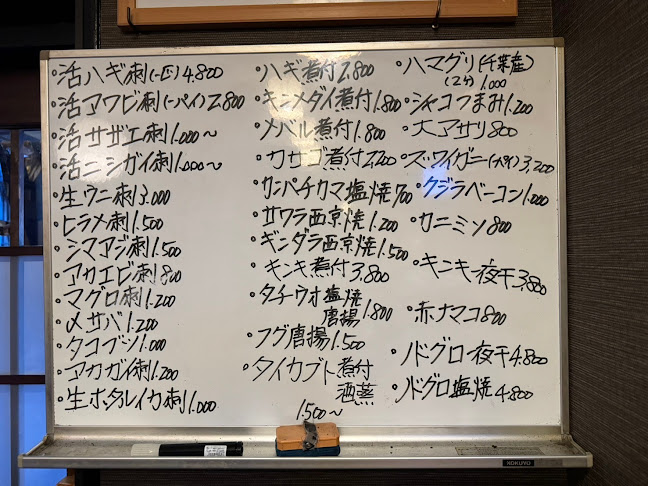 ・活ハギ刺(一匹)4.800
・活アワビ刺(一パイ)2.800
・活サザエ刺1.000〜
・活ニシガイ刺1.000〜
・生ウニ刺3.000
・ヒラメ刺1.500
・シマアジ刺1.500
・アカエビ刺800
・マグロ刺1.200
・〆サバ1.200
・タコブツ1.000
・アカガイ刺1.200
・生ホタルイカ刺1.000
・ハギ煮付2.800
・キンメダイ煮付1.800
・メバル煮付1.800
・カサゴ煮付2.200
・カンパチカマ塩焼700
・サワラ西京焼1.200
・ギンダラ西京焼1.500
・キンキ煮付3.800
・タチウオ塩焼
唐揚1.800
・フグ唐揚1.500
・タイカブト煮付
酒蒸
1.500〜
・ハマグリ(千葉産)
(2ケ)1.000
・シャコつまみ1.200
・大アサリ800
・ズワイガニ(1パイ)3,200
・クジラベーコン1.000
・カニミソ800
・キンキ一夜干3,800
・赤ナマコ800
・ノドグロ一夜干4.800
・ノドグロ塩焼4.800
KOKUYO